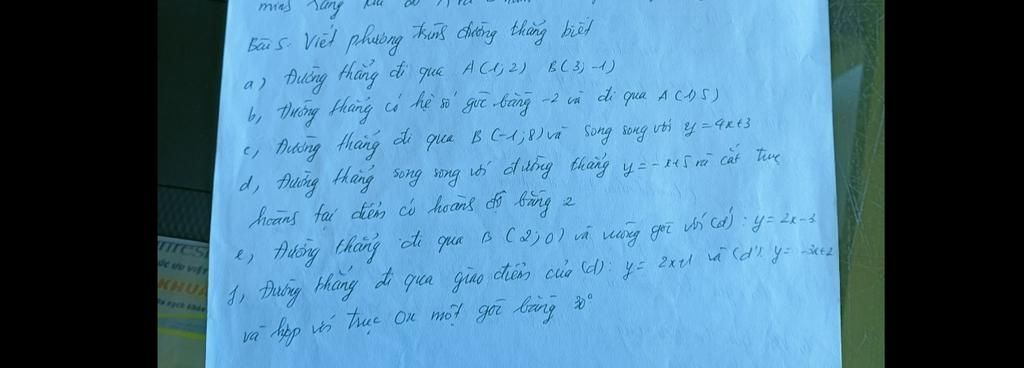 minh rằng khi đó
Bài 5. Viết phương trình đường thẳng biết
a) Đường thẳng đi qua A(1; 2) B(3; -1)
b, Đường thẳng có hệ số góc bằng -2 và đi qua A(1; 5)
c, Đường thẳng đi qua B(-1; 8) và song song với y = 4x+3
d, Đường thẳng song song với đường thẳng y = -x+5 và cắt trục
hoành tại điểm có hoành độ bằng 2
e, Đường thẳng đi qua B(2; 0) và vuông góc với (d'): y = 2x-3
f, Đường thẳng đi qua giao điểm của (d): y = 2x+1 và (d'): y = -3x+2
và hợp với trục Ox một góc bằng 30°
ƯU VIỆT
KHUẨ